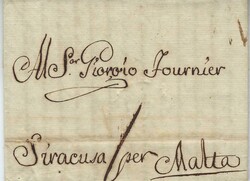 Al Sor Giorgio Fournier
Siracusa / per Malta